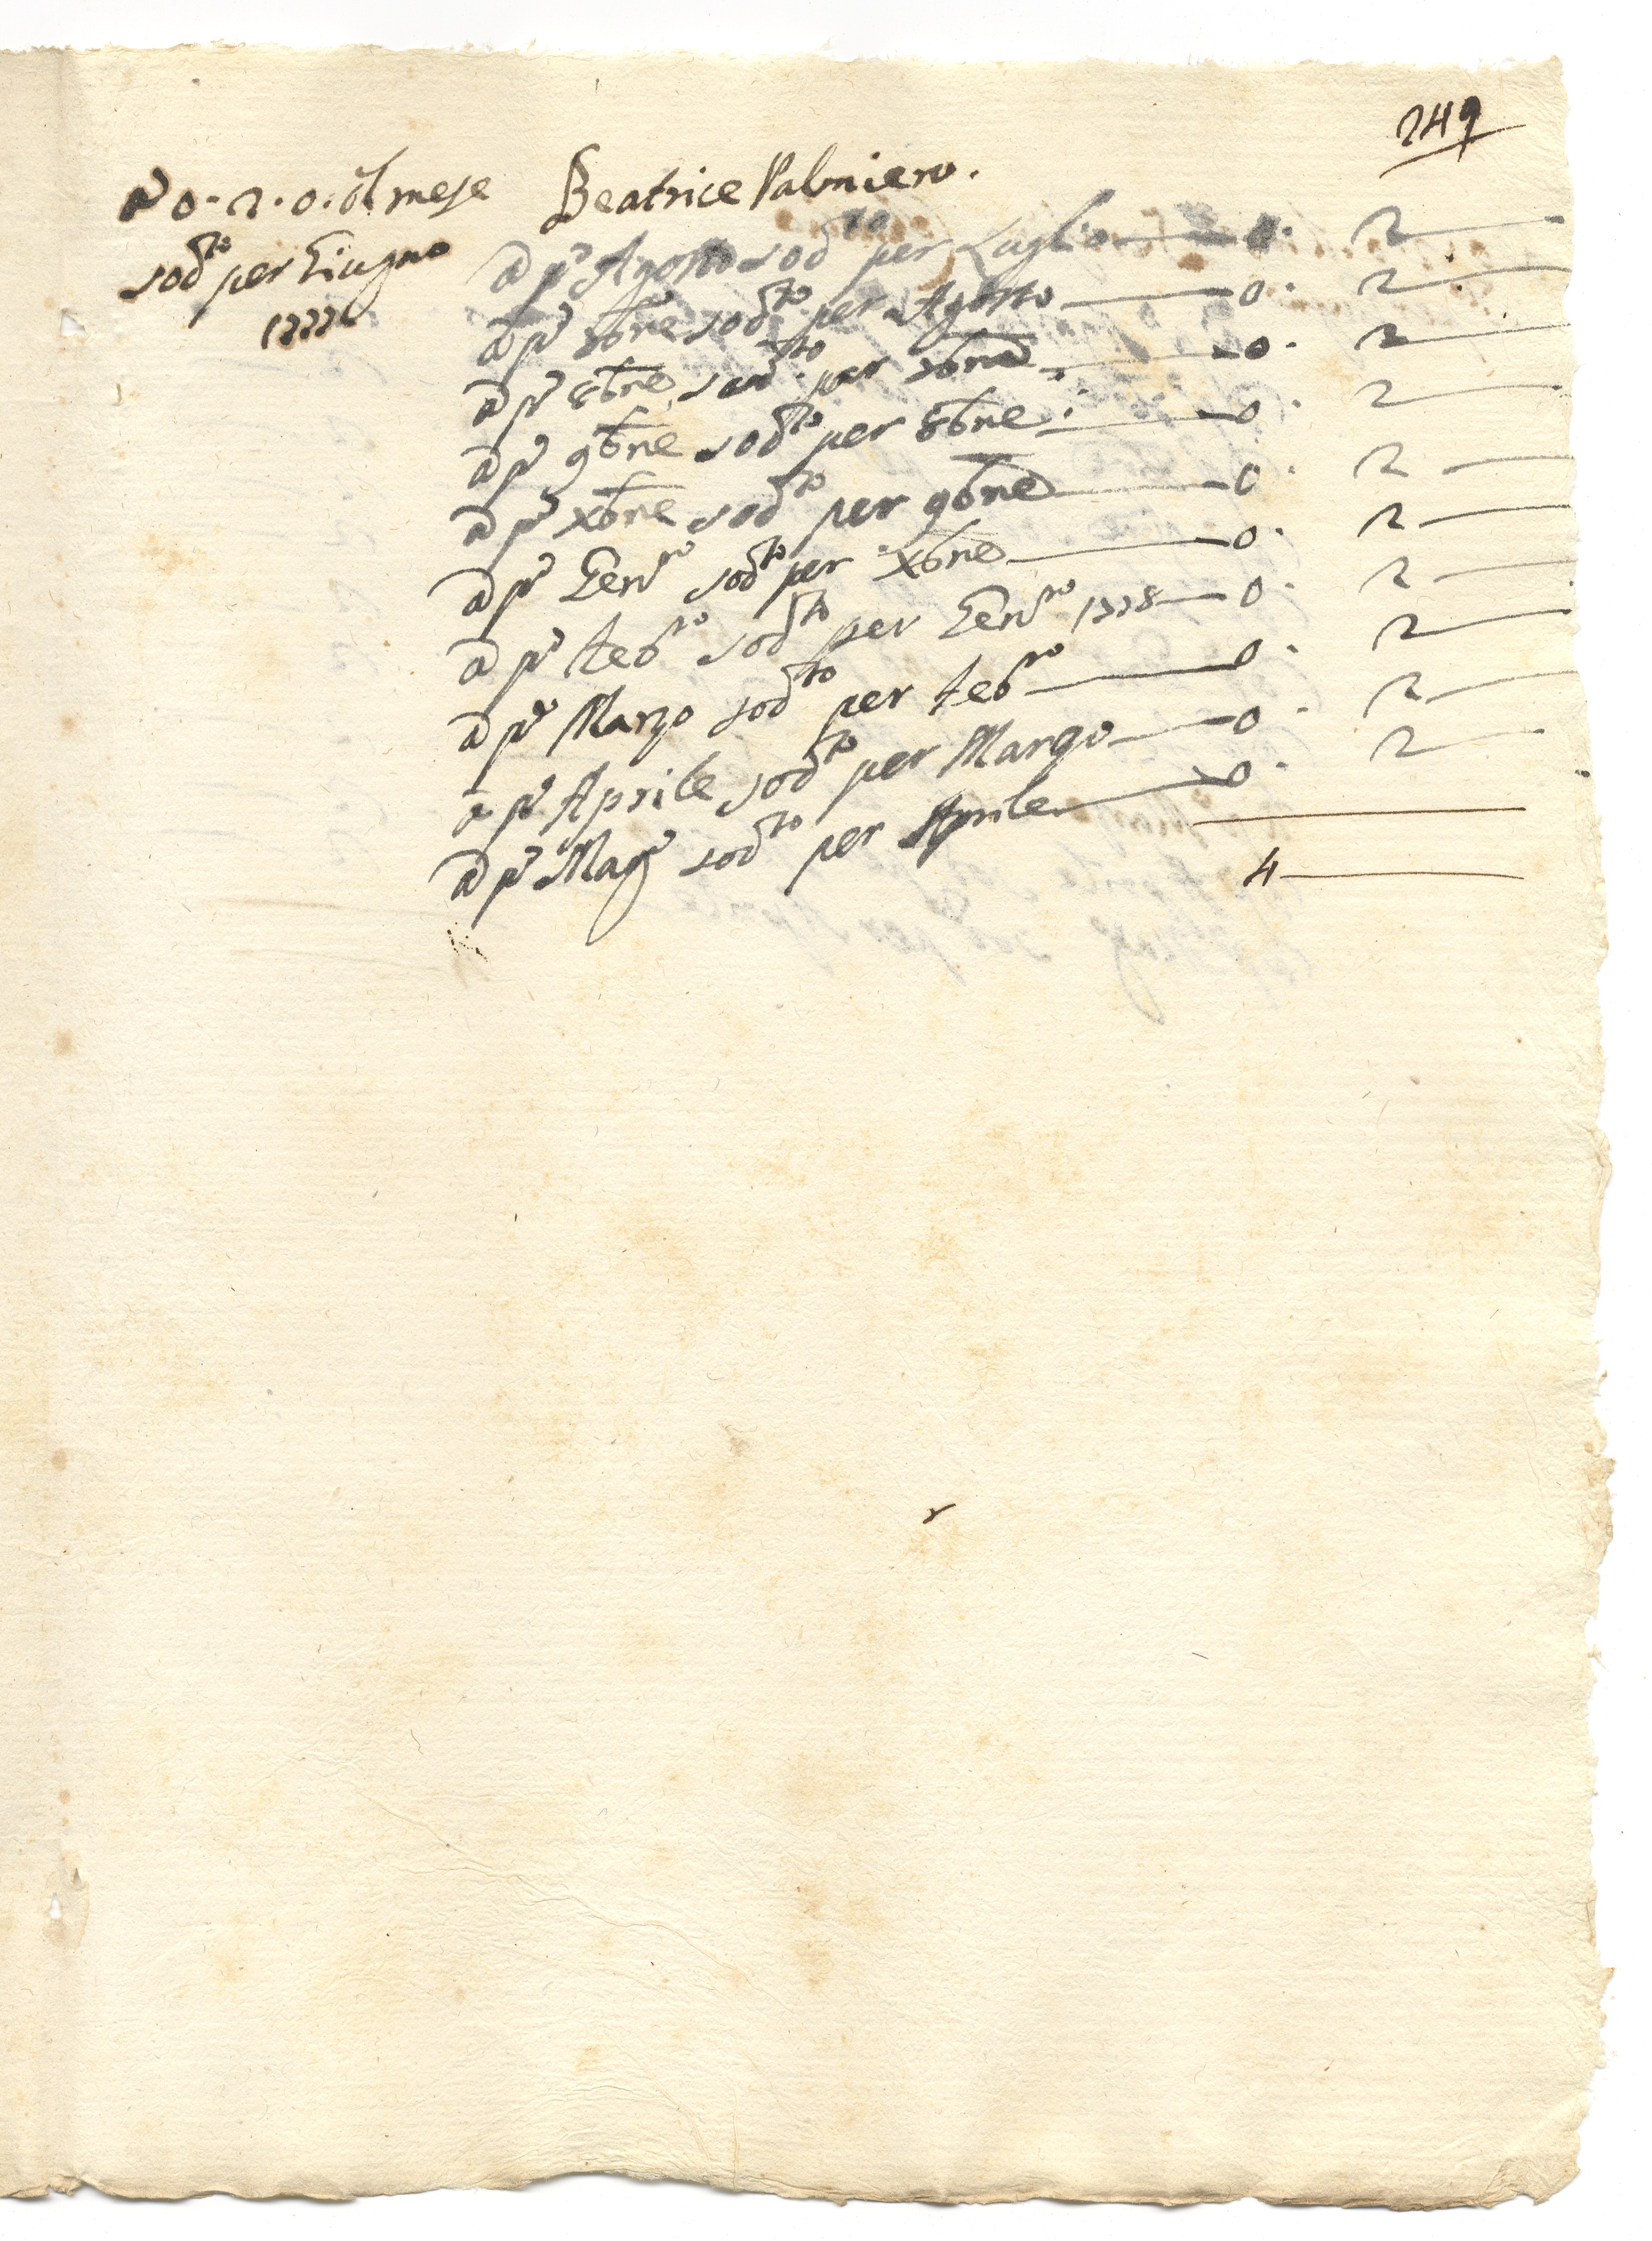 249
0. 2. 0. il mese
Beatrice Palmiero.
sod.to per Giugno
1777
a p.o Agosto sod.to per Luglio — 0. 2 —
a p.o 7bre sod.to per Agosto — 0. 2 —
a p.o 8bre sod.to per 7bre — 0. 2 —
a p.o 9bre sod.to per 8bre — 0. 2 —
a p.o Xbre sod.to per 9bre — 0. 2 —
a p.o Gen.ro sod.to per Xbre — 0. 2 —
a p.o Feb.ro sod.to per Gen.ro 1778 — 0. 2 —
a p.o Marzo sod.to per Feb.ro — 0. 2 —
a p.o Aprile sod.to per Marzo — 0. 2 —
a p.o Mag.o sod.to per Aprile — 0. 2 —
4 —